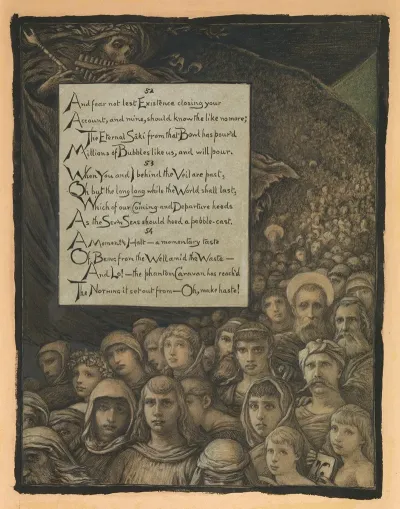 52
And fear not lest Existence closing your
Account, and mine, should know the like no more;
The Eternal Sáki from that Bowl has pour'd
Millions of Bubbles like us, and will pour.
53
When You and I behind the Veil are past,
Oh but the long long while the World shall last,
Which of our Coming and Departure heeds
As the Sev'n Seas should heed a pebble-cast.
54
A Moment's Halt — a momentary taste
Of Being from the Well amid the Waste —
And Lo! — the phantom Caravan has reach'd
The Nothing it set out from — Oh, make haste!